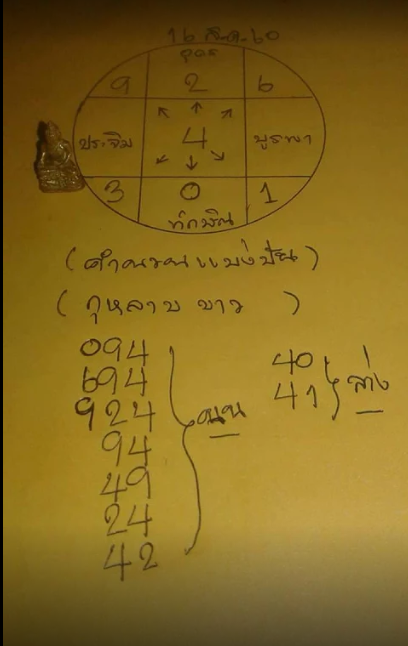 16 ส.ค. 60
อุดร
9 2 6
ประจิม 4 บูรพา
3 0 1
ทักษิณ
(คำนวณแบ่งปัน)
(กุหลาบ ขาว )
094
694
924
94
49
24
42
บน
40
41
ล่าง